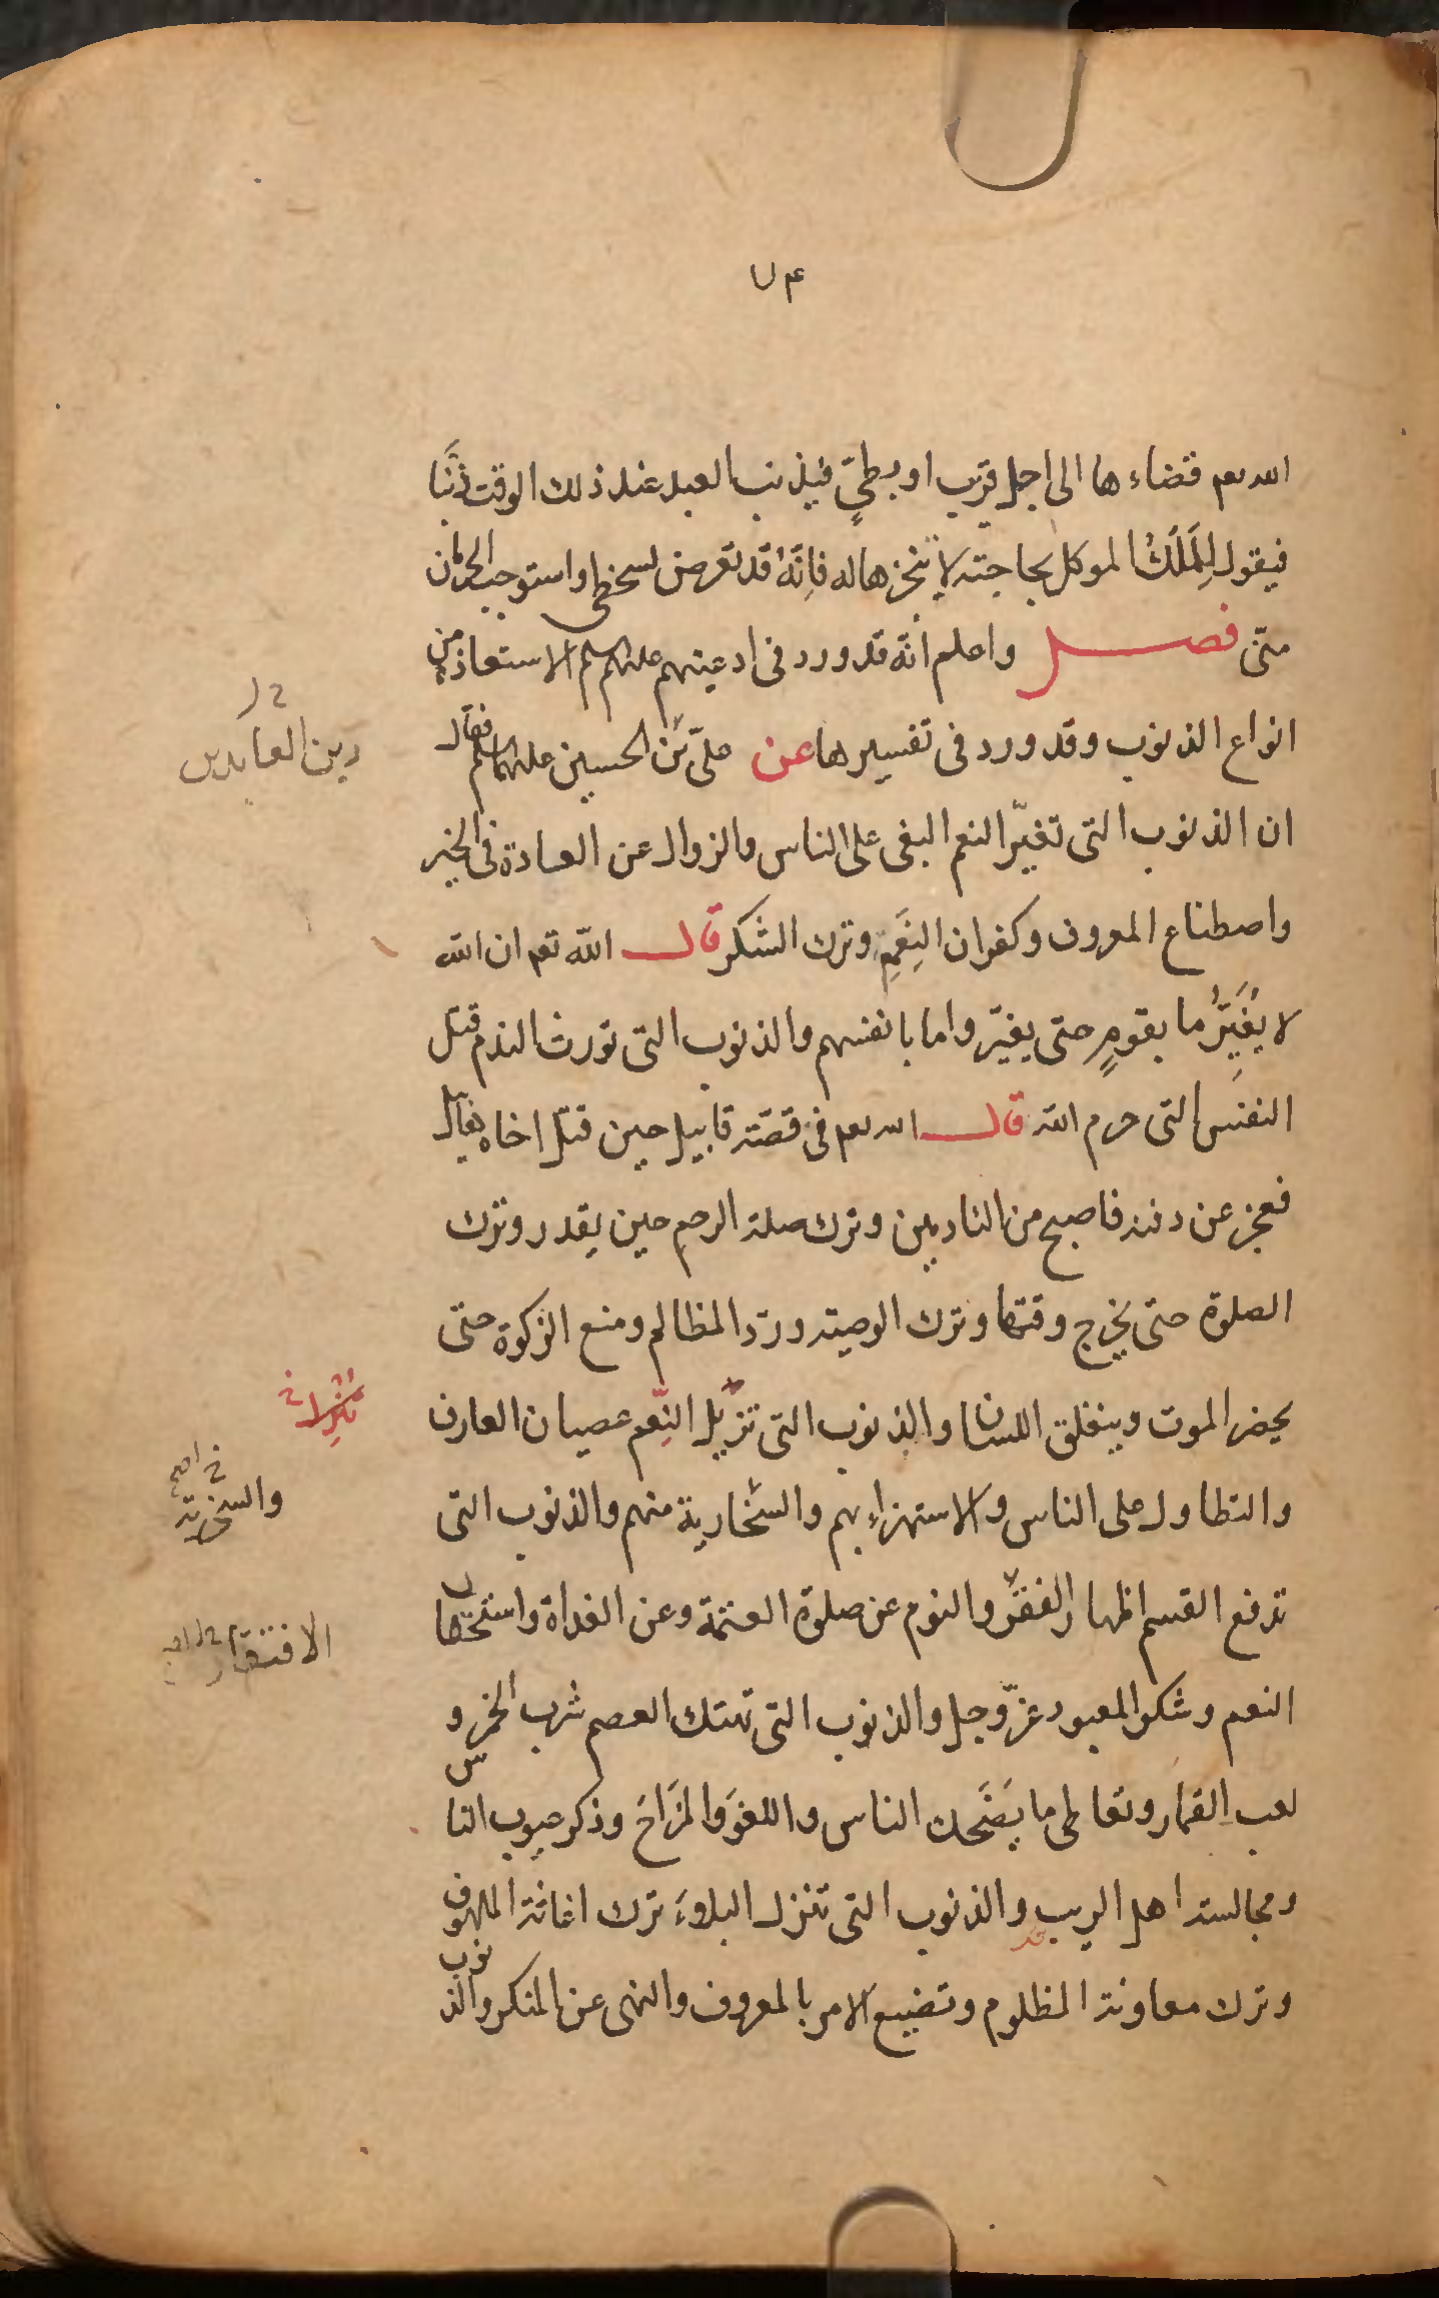 ٧۴
الله تعم قضاءها الى اجل قريب او بطئ فيذنب العبد عند ذلك الوقت ذنبًا
فيقول لِلمَلَك الموكل بحاجته لا تنجزها له فانّهُ قد تعرض لسخطى واستوجب الحرمان
منّى فصل واعلم انه قد ورد فى ادعيتهم عليهم السلم الاستعاذة من
انواع الذنوب وقد ورد فى تفسيرها عن علىّ بن الحسين عليهما السلم فقال
زين العابدين
ان الذنوب التى تغيّر النعم البغى على الناس والزوال عن العادة فى الخير
واصطناع المعروف وكفران النِعَمِ وترك الشكر قال الله تعم ان الله
لا يُغَيِّرُ ما بقومٍ حتى يغيّروا ما بانفسهم والذنوب التى تورث الندم قتل
النفس التى حرم الله قال الله تعم فى قصّة قابيل حين قتل اخاه هابيل
فعجز عن دفنه فاصبح من النادمين وترك صلة الرحم حين يقدر وترك
الصلوة حتى يخرج وقتها وترك الوصية وردّ المظالم ومنع الزكوة حتى
يحضر الموت وينغلق اللسان والذنوب التى تزيل النِّعم عصيان العارف
والتطاول على الناس والاستهزاء بهم والسّخارية منهم والذنوب التى
والسخرية
تدفع القسم اظهار الفقر والنوم عن صلوة العتمة وعن الغداة واستحقار
الافتقار
النعم وشكوا المعبود عزّ وجل والذنوب التى تهتك العصم شرب الخمر و
لعب القمار وتعاطى ما يَضحَك الناس واللغوَ والمزَاحَ وذكر عيوب الناس
ومجالسة اهل الريب والذنوب التى تنزل البلاءَ ترك اغاثة الملهوف
وترك معاونة المظلوم وتضييع الامر بالمعروف والنهى عن المنكر والذنوب